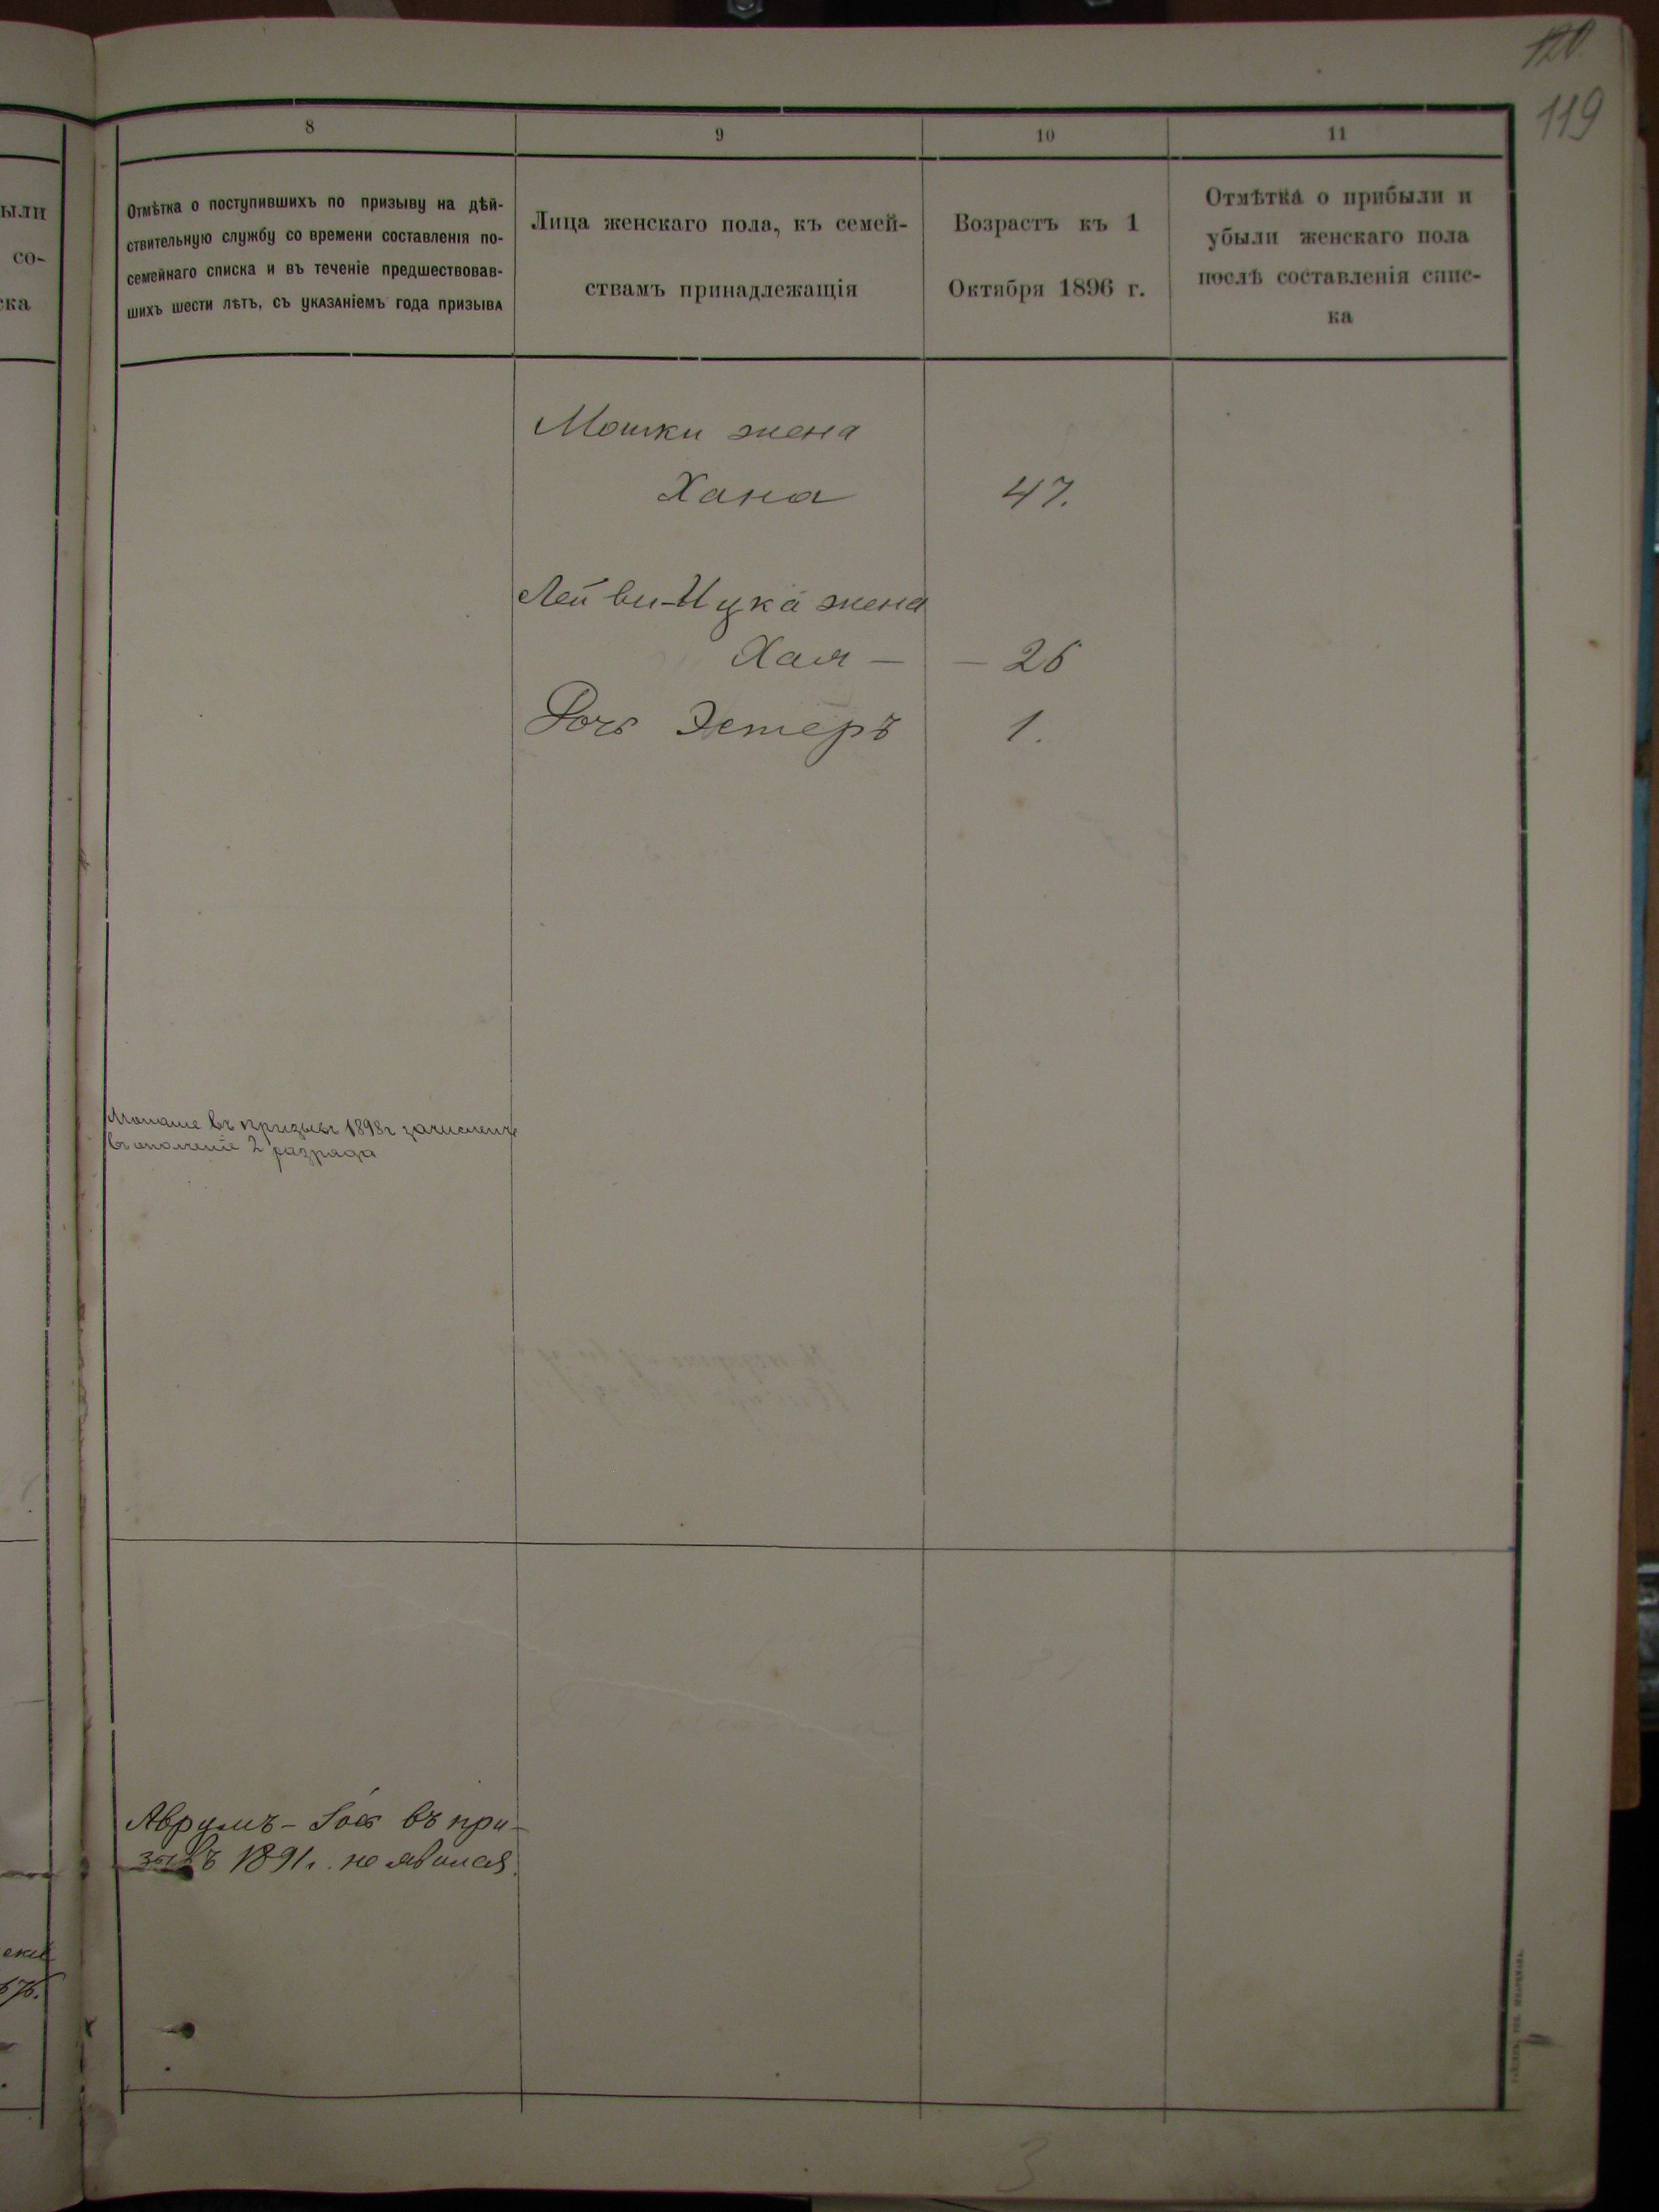 120
119
ыли
со-
ска
8
9
10
11
Отмѣтка о поступившихъ по призыву на дѣй-
ствительную службу со времени составленія по-
семейнаго списка и въ теченіе предшествовав-
шихъ шести лѣтъ, съ указаніемъ года призыва
Лица женскаго пола, къ семей-
ствамъ принадлежащія
Возрастъ къ 1
Октября 1896 г.
Отмѣтка о прибыли и
убыли женскаго пола
послѣ составленія спис-
ка
Мошки жена
Хана 47.
Лейви-Ицка жена
Хая — — 26
Дочь Эстеръ 1.
Монаше въ призывъ 1898 г зачисленъ
въ ополченіе 2 разряда
Аврумъ- въ при-
зывъ 1891 г. не явился.
3